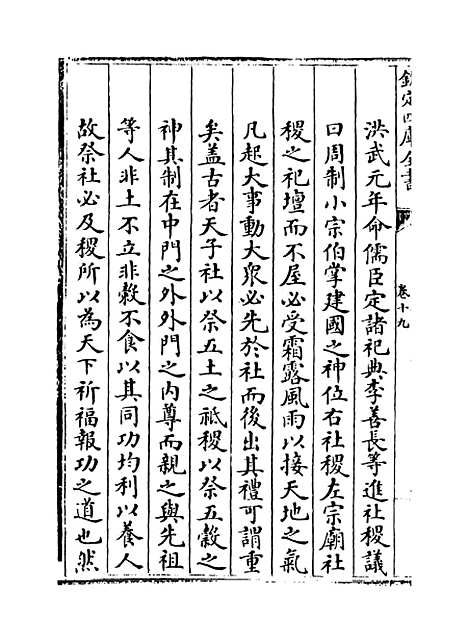 欽定四庫全書
卷十九
洪武元年命儒臣定諸祀典李善長等進社稷議
曰周制小宗伯掌建國之神位右社稷左宗廟社
稷之祀壇而不屋必受霜露風雨以接天地之氣
凡起大事動大衆必先於社而後出其禮可謂重
矣盖古者天子社以祭五土之祇稷以祭五穀之
神其制在中門之外外門之内尊而親之與先祖
等人非土不立非穀不食以其同功均利以養人
故祭社必及稷所以為天下祈福報功之道也然